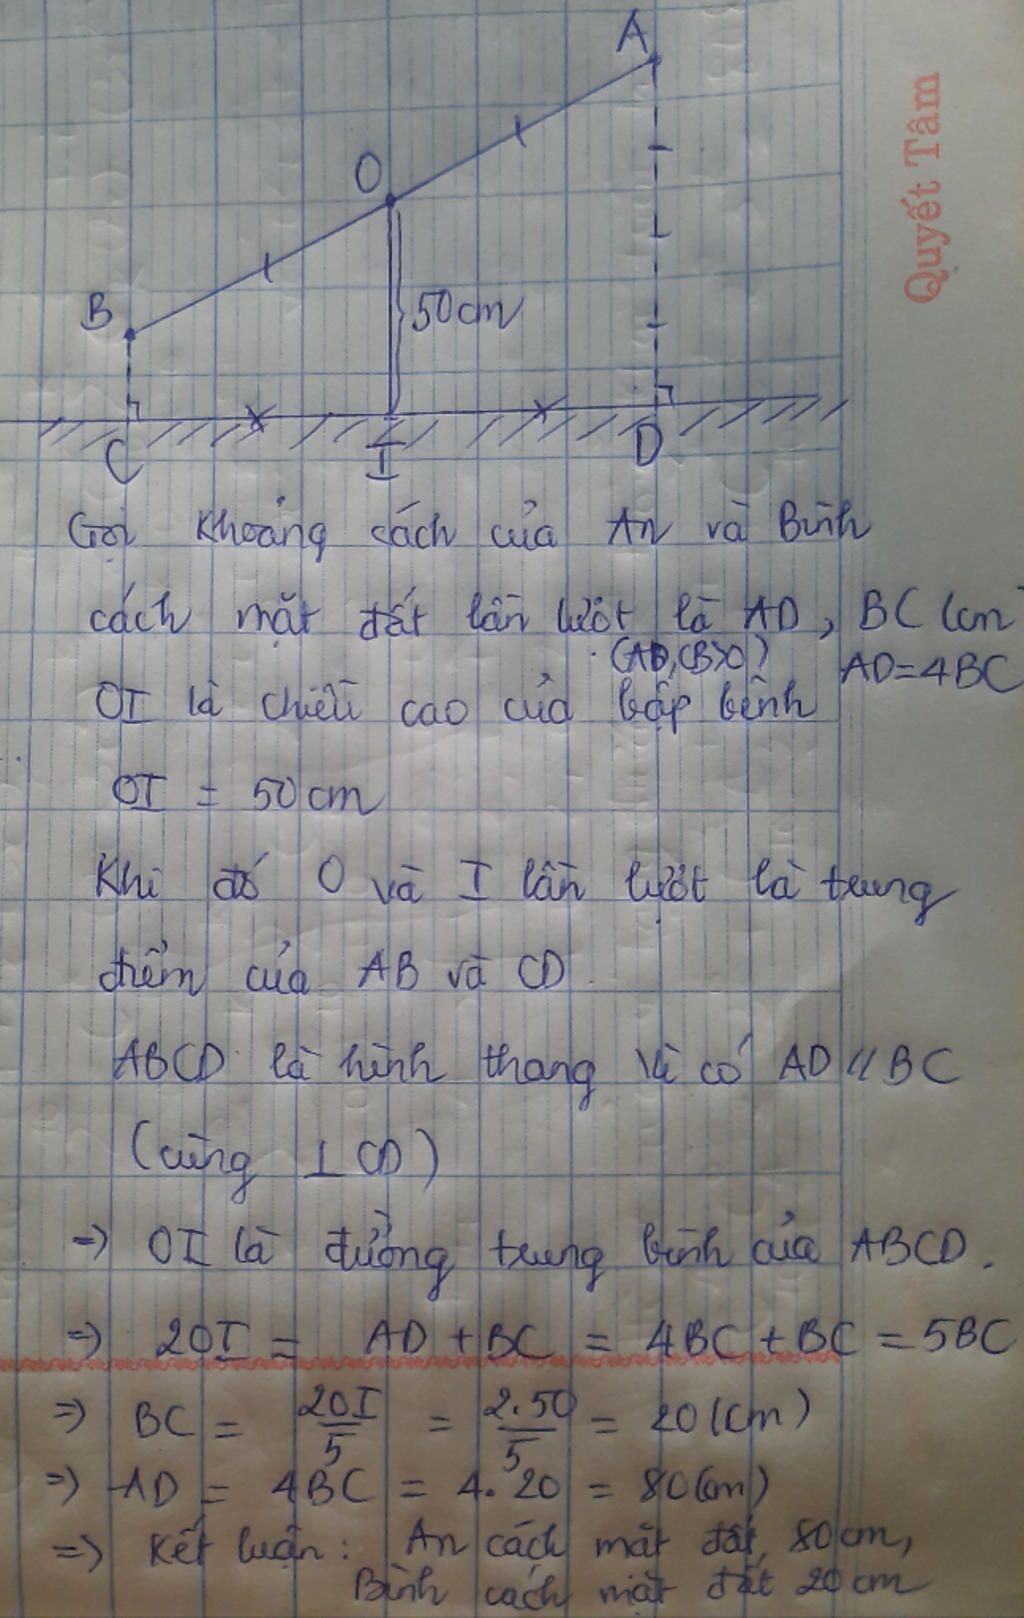 A
Quyết Tâm
O
B
50cm
C
I
D
Gọi khoảng cách của An và Bình
cách mặt đất lần lượt là AD, BC (cm)
(AD, CB>0)
AD=4BC
OI là chiều cao của bập bênh
OI = 50cm
Khi đó O và I lần lượt là trung
điểm của AB và CD.
ABCD là hình thang vì có AD // BC
(cùng ⊥ CD)
=> OI là đường trung bình của ABCD.
=> 2OI = AD + BC = 4BC + BC = 5BC
=> BC = 2OI/5 = 2.50/5 = 20 (cm)
=> AD = 4BC = 4.20 = 80(cm)
=> Kết luận: An cách mặt đất 80cm,
Bình cách mặt đất 20cm